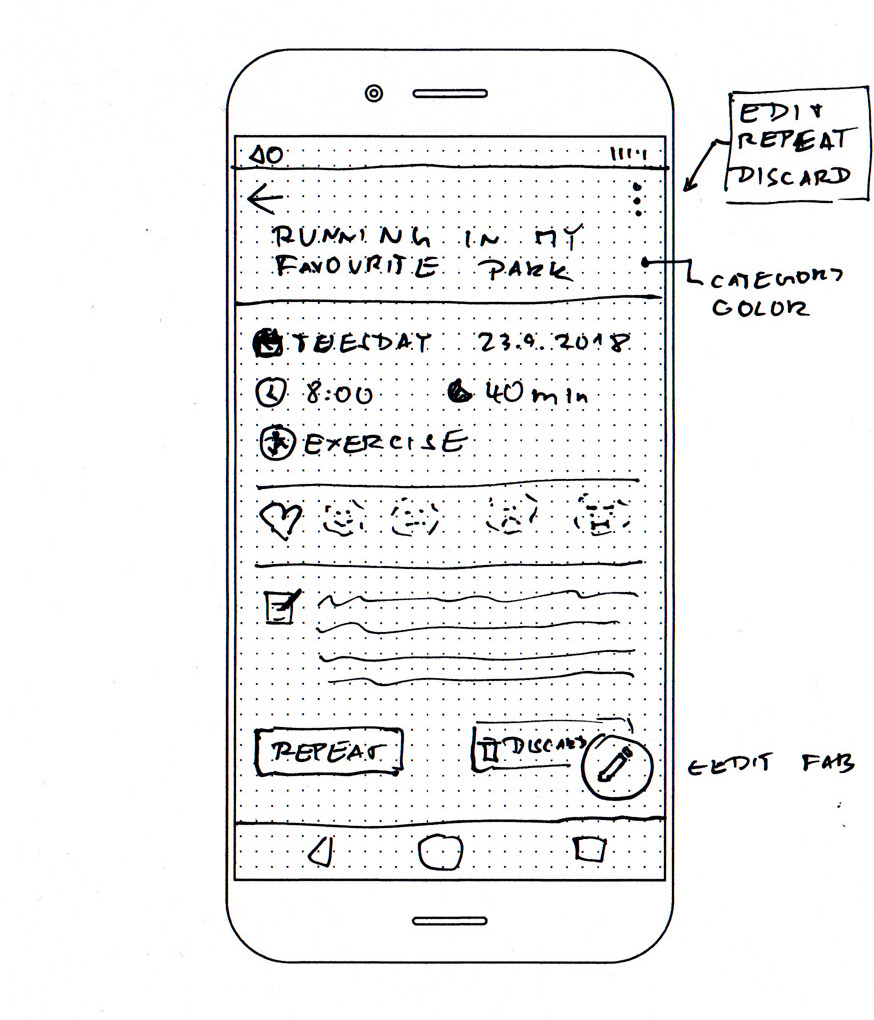 EDIT
REPEAT
DISCARD
RUNNING IN MY
FAVOURITE PARK
CATEGORY
COLOR
TUESDAY 23.9.2018
8:00 40 min
EXERCISE
REPEAT
DISCARD
EDIT FAB